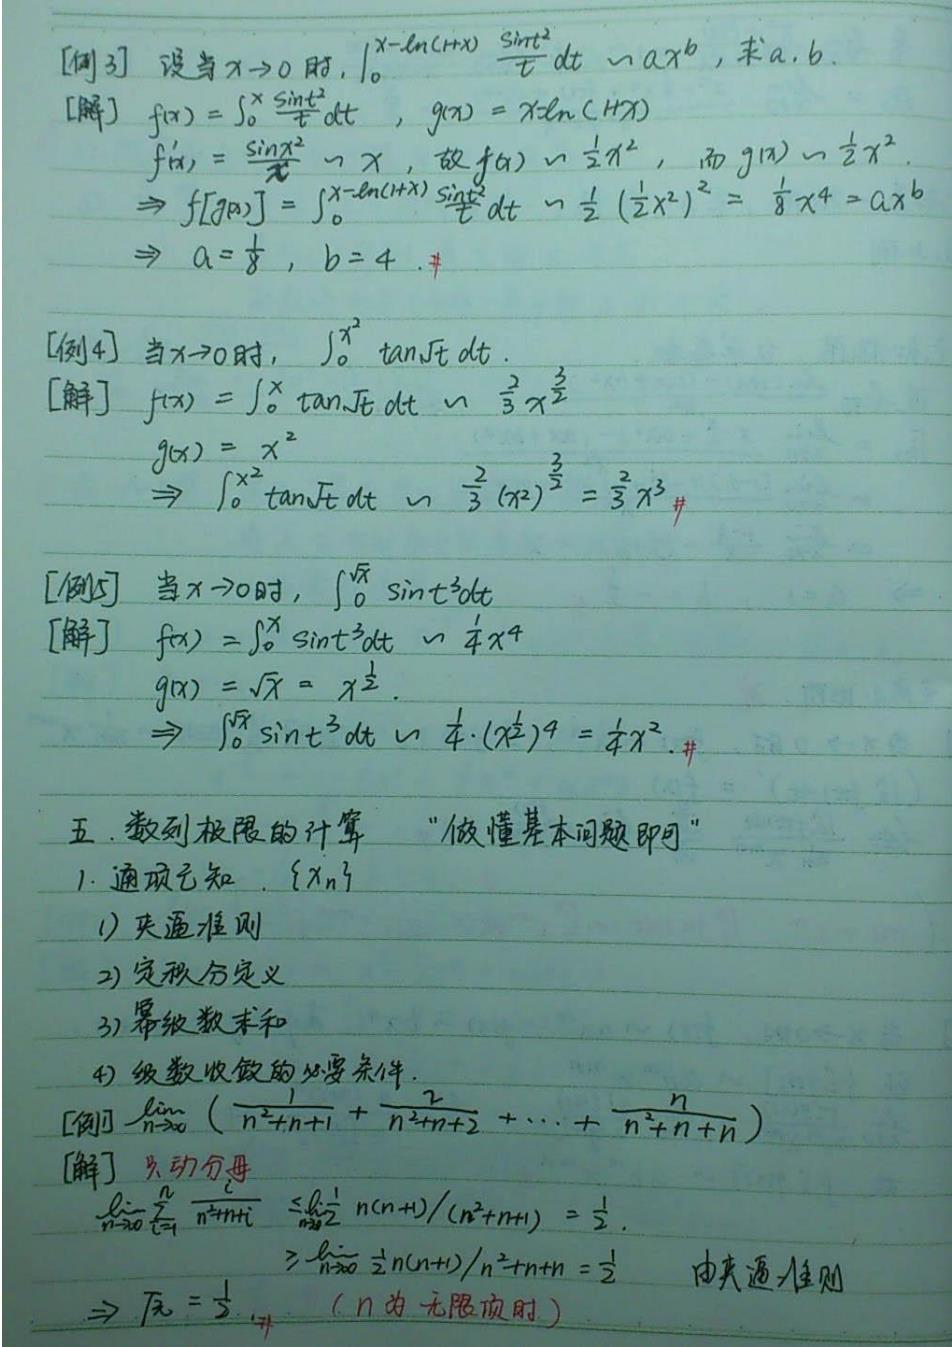 [例3] 设当 x→0 时, ∫₀^(x-ln(1+x)) sint²/t dt ∽ ax^b, 求 a, b.
[解] f(x) = ∫₀^x sint²/t dt , g(x) = x-ln(1+x)
f'(x) = sinx²/x ∽ x , 故 f(x) ∽ 1/2 x² , 而 g(x) ∽ 1/2 x² .
⇒ f[g(x)] = ∫₀^(x-ln(1+x)) sint²/t dt ∽ 1/2 (1/2 x²)² = 1/8 x⁴ = ax^b
⇒ a = 1/8 , b = 4 . #
[例4] 当 x→0 时, ∫₀^(x²) tan√t dt .
[解] f(x) = ∫₀^x tan√t dt ∽ 2/3 x^(3/2)
g(x) = x²
⇒ ∫₀^(x²) tan√t dt ∽ 2/3 (x²)^(3/2) = 2/3 x³ #
[例5] 当 x→0 时, ∫₀^(√x) sint³dt
[解] f(x) = ∫₀^x sint³dt ∽ 1/4 x⁴
g(x) = √x = x^(1/2) .
⇒ ∫₀^(√x) sint³dt ∽ 1/4 · (x^(1/2))⁴ = 1/4 x² . #
五. 数列极限的计算 "做懂基本问题即可"
1. 通项已知 . {xn}
1) 夹逼准则
2) 定积分定义
3) 幂级数求和
4) 级数收敛的必要条件.
[例1] lim n→∞ ( 1/(n²+n+1) + 2/(n²+n+2) + ... + n/(n²+n+n) )
[解] 只动分母
lim n→∞ Σ i=1 n i/(n²+n+i) ≤ lim n→∞ 1/2 n(n+1)/(n²+n+1) = 1/2 .
≥ lim n→∞ 1/2 n(n+1)/n²+n+n = 1/2 由夹逼准则
⇒ 原 = 1/2 . # (n为无限项时)